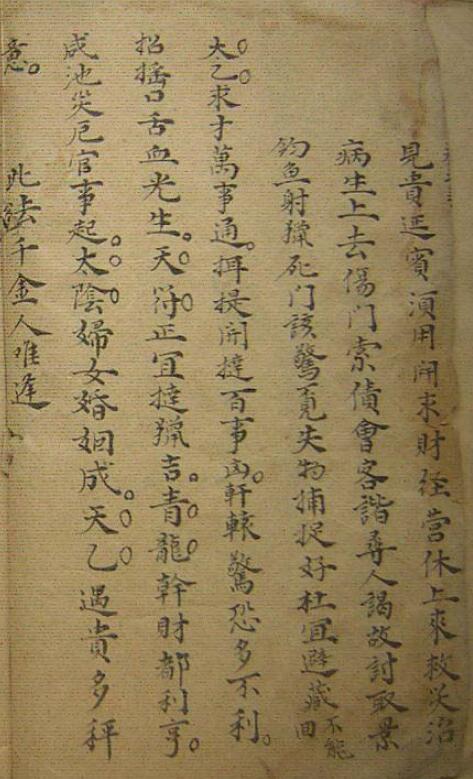 見貴延賓湏用開求財经营休上來救災治
病生上去傷門索債會客諧尋人謁故討取景
釣魚射獵死门該驚覓失物捕捉好杜宜避藏不能回
太乙求才萬事通。捛提開撻百事凶。軒轅驚恐多不利。
招摇口舌血光生。天符正宜撻獵吉。青龍幹財都利亨。
咸池災厄官事起。太陰婦女婚姻成。天乙遇貴多秤
意。 此法千金人难逢